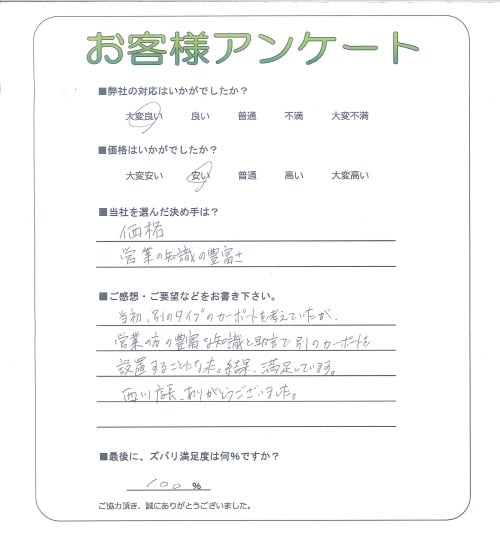 お客様アンケート
■弊社の対応はいかがでしたか？
大変良い 良い 普通 不満 大変不満
■価格はいかがでしたか？
大変安い 安い 普通 高い 大変高い
■当社を選んだ決め手は？
価格
営業の知識の豊富さ
■ご感想・ご要望などをお書き下さい。
当初、別のタイプのカーポートを考えていたが、
営業の方の豊富な知識と助言で別のカーポートを
設置することになった。結果、満足しています。
西川店長、ありがとうございました。
■最後に、ズバリ満足度は何%ですか？
100 %
ご協力頂き、誠にありがとうございました。